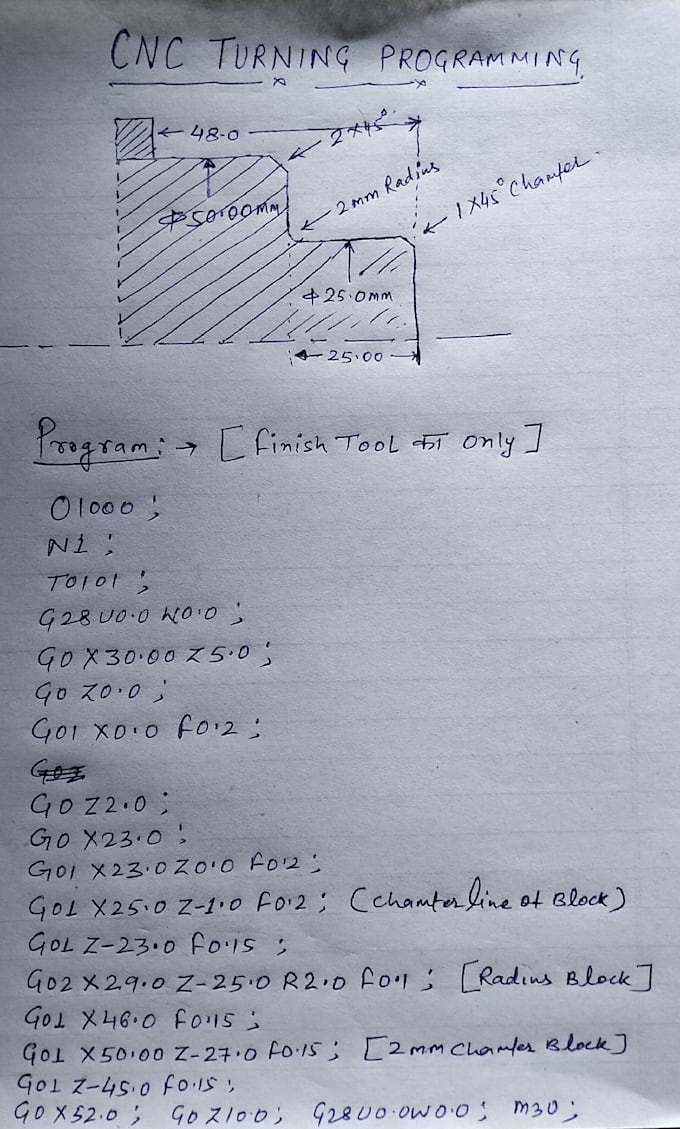 CNC TURNING PROGRAMMING
48.0
2x45°
Φ50.00mm
2mm Radius
1x45° Chamfer
Φ25.0mm
25.00
Program: → [finish Tool का only]
O1000 ;
N1 ;
T0101 ;
G28 U0.0 W0.0 ;
G0 X30.00 Z5.0 ;
G0 Z0.0 ;
G01 X0.0 f0.2 ;
G0 Z2.0 ;
G0 X23.0 ;
G01 X23.0 Z0.0 f0.2 ;
G01 X25.0 Z-1.0 f0.2 ; (chamfer line of Block)
G01 Z-23.0 f0.15 ;
G02 X29.0 Z-25.0 R2.0 f0.1 ; [Radius Block]
G01 X46.0 f0.15 ;
G01 X50.00 Z-27.0 f0.15 ; [2mm Chamfer Block]
G01 Z-45.0 f0.15 ;
G0 X52.0 ; G0 Z10.0 ; G28 U0.0 W0.0 ; m30 ;